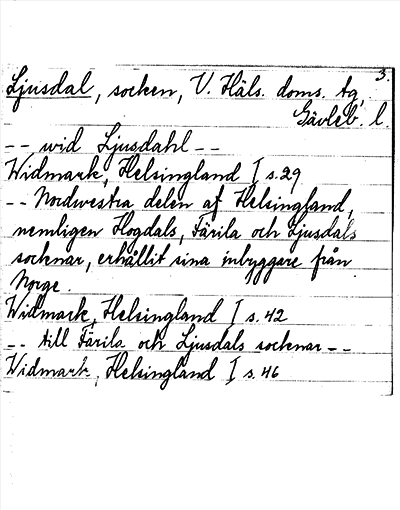 3.
Ljusdal, socken, V. Häls. doms. tg,
Gävleb. l.
-- wid Ljusdahl --
Widmark, Helsingland I s. 29
-- Nordwestra delen af Helsingland,
nemligen Hogdals, Färila och Ljusdals
socknar, erhållit sina inbyggare från
Norge.
Widmark, Helsingland I s. 42
-- till Färila och Ljusdals socknar --
Widmark, Helsingland I s. 46